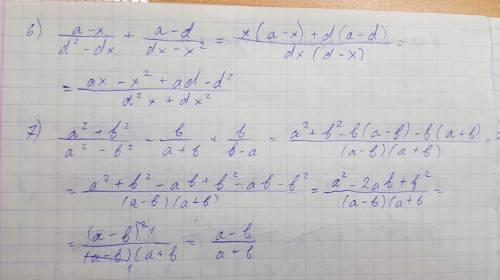 6) \frac{a-x}{d^2-dx} + \frac{a-d}{dx-x^2} = \frac{x(a-x)+d(a-d)}{dx(d-x)} =
= \frac{ax-x^2+ad-d^2}{d^2x+dx^2}
7) \frac{a^2+b^2}{a^2-b^2} - \frac{b}{a+b} + \frac{b}{b-a} = \frac{a^2+b^2-b(a-b)-b(a+b)}{(a-b)(a+b)} =
= \frac{a^2+b^2-ab+b^2-ab-b^2}{(a-b)(a+b)} = \frac{a^2-2ab+b^2}{(a-b)(a+b} =
= \frac{(a-b)^{2 1}}{(a-b)_1(a+b} = \frac{a-b}{a+b}